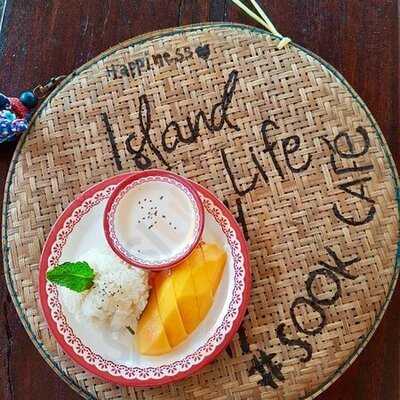 Happiness
Island
Life
#SOOK CAFE